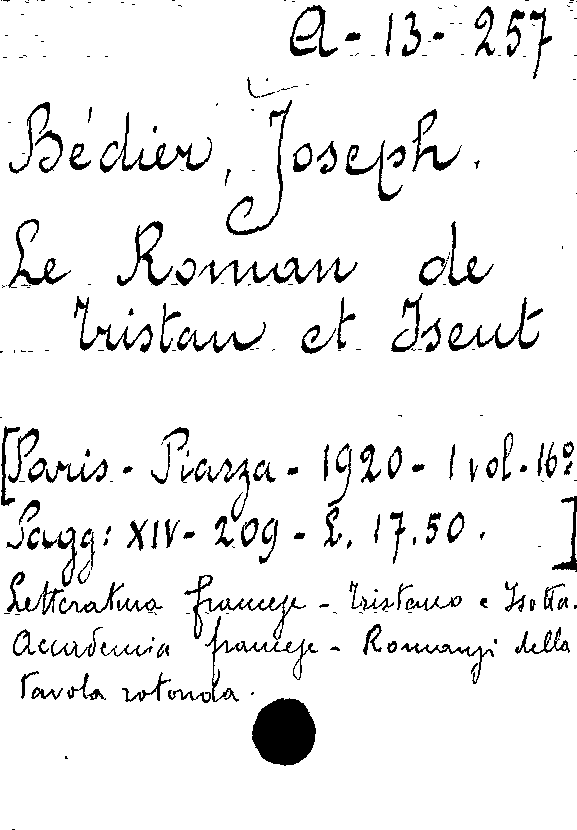 A - 13 - 257
Bédier, Joseph.
Le Roman de
Tristan et Iseut
[Paris - Piazza - 1920 - 1 vol - 16°
Pagg: XIV - 209 - L. 17.50. ]
Letteratura francese - Tristano e Isotta.
Accademia francese - Romanzi della
tavola rotonda.